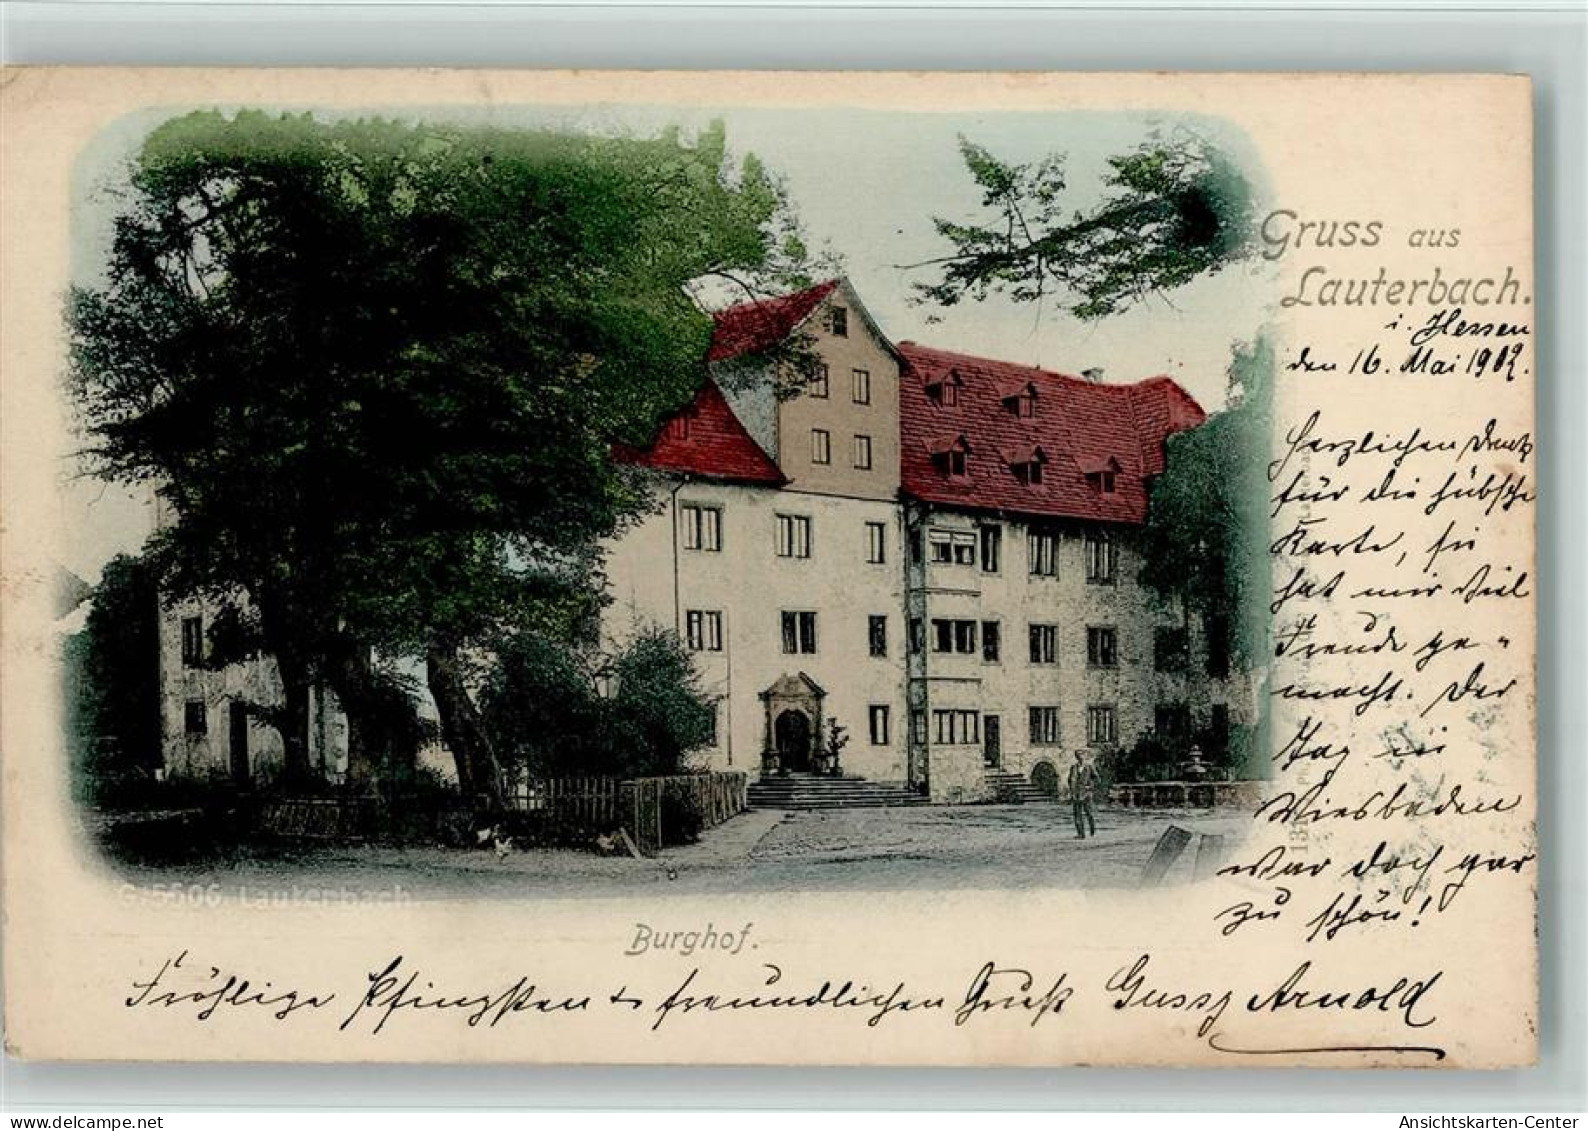 Gruss aus
Lauterbach.
i. Hessen
den 16. Mai 1902.
Herzlichen Dank
für die hübsche
Karte, sie
hat mir viel
Freude ge-
macht. Der
Tag in
Wiesbaden
war doch gar
zu schön!
G. 5606. Lauterbach.
Burghof.
Fröhliche Pfingsten & freundlichen Gruß Gussy Arnold
Ansichtskarten-Center
www.delcampe.net